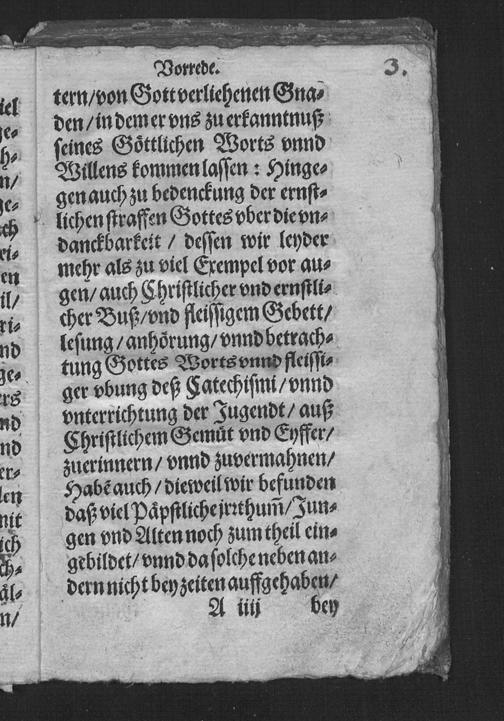 Vorrede.
3.
tern/von Gott verliehenen Gna⸗
den/in dem er vns zu erkanntnuß
seines Göttlichen Worts vnnd
Willens kommen lassen : Hinge⸗
gen auch zu bedenckung der ernst⸗
lichen straffen Gottes vber die vn⸗
danckbarkeit / dessen wir leyder
mehr als zu viel Exempel vor au⸗
gen/ auch Christlicher vnd ernstli⸗
cher Buß/vnd fleissigem Gebett/
lesung/anhörung/vnnd betrach⸗
tung Gottes Worts vnnd fleissi⸗
ger vbung deß Catechismi/vnnd
vnterrichtung der Jugendt/ auß
Christlichem Gemüt vnd Eyffer/
zuerinnern/ vnnd zuvermahnen/
Habẽ auch/ dieweil wir befunden
daß viel Päpstliche jrꝛthum̃/Jun⸗
gen vnd Alten noch zum theil ein⸗
gebildet/vnnd da solche neben an⸗
dern nicht bey zeiten auffgehaben/
A iiij bey
iel
ge⸗
h⸗
n/
ge⸗
ch
ei⸗
en
il/
ri⸗
nd
ge⸗
ers
nd
nd
er⸗
len
mit
ich
ch⸗
äl⸗
n/